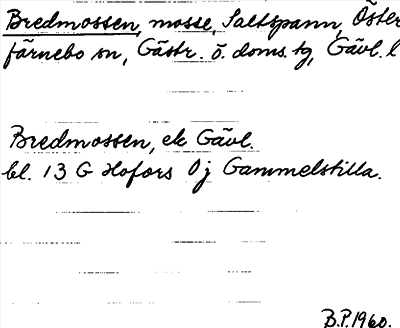 Bredmossen, mosse, Saltspann, Öster
färnebo sn, Gästr. ö. doms. tg, Gävl. l
Bredmossen, ek Gävl.
bl. 13 G Hofors 0 j Gammelstilla.
B.P. 1960.